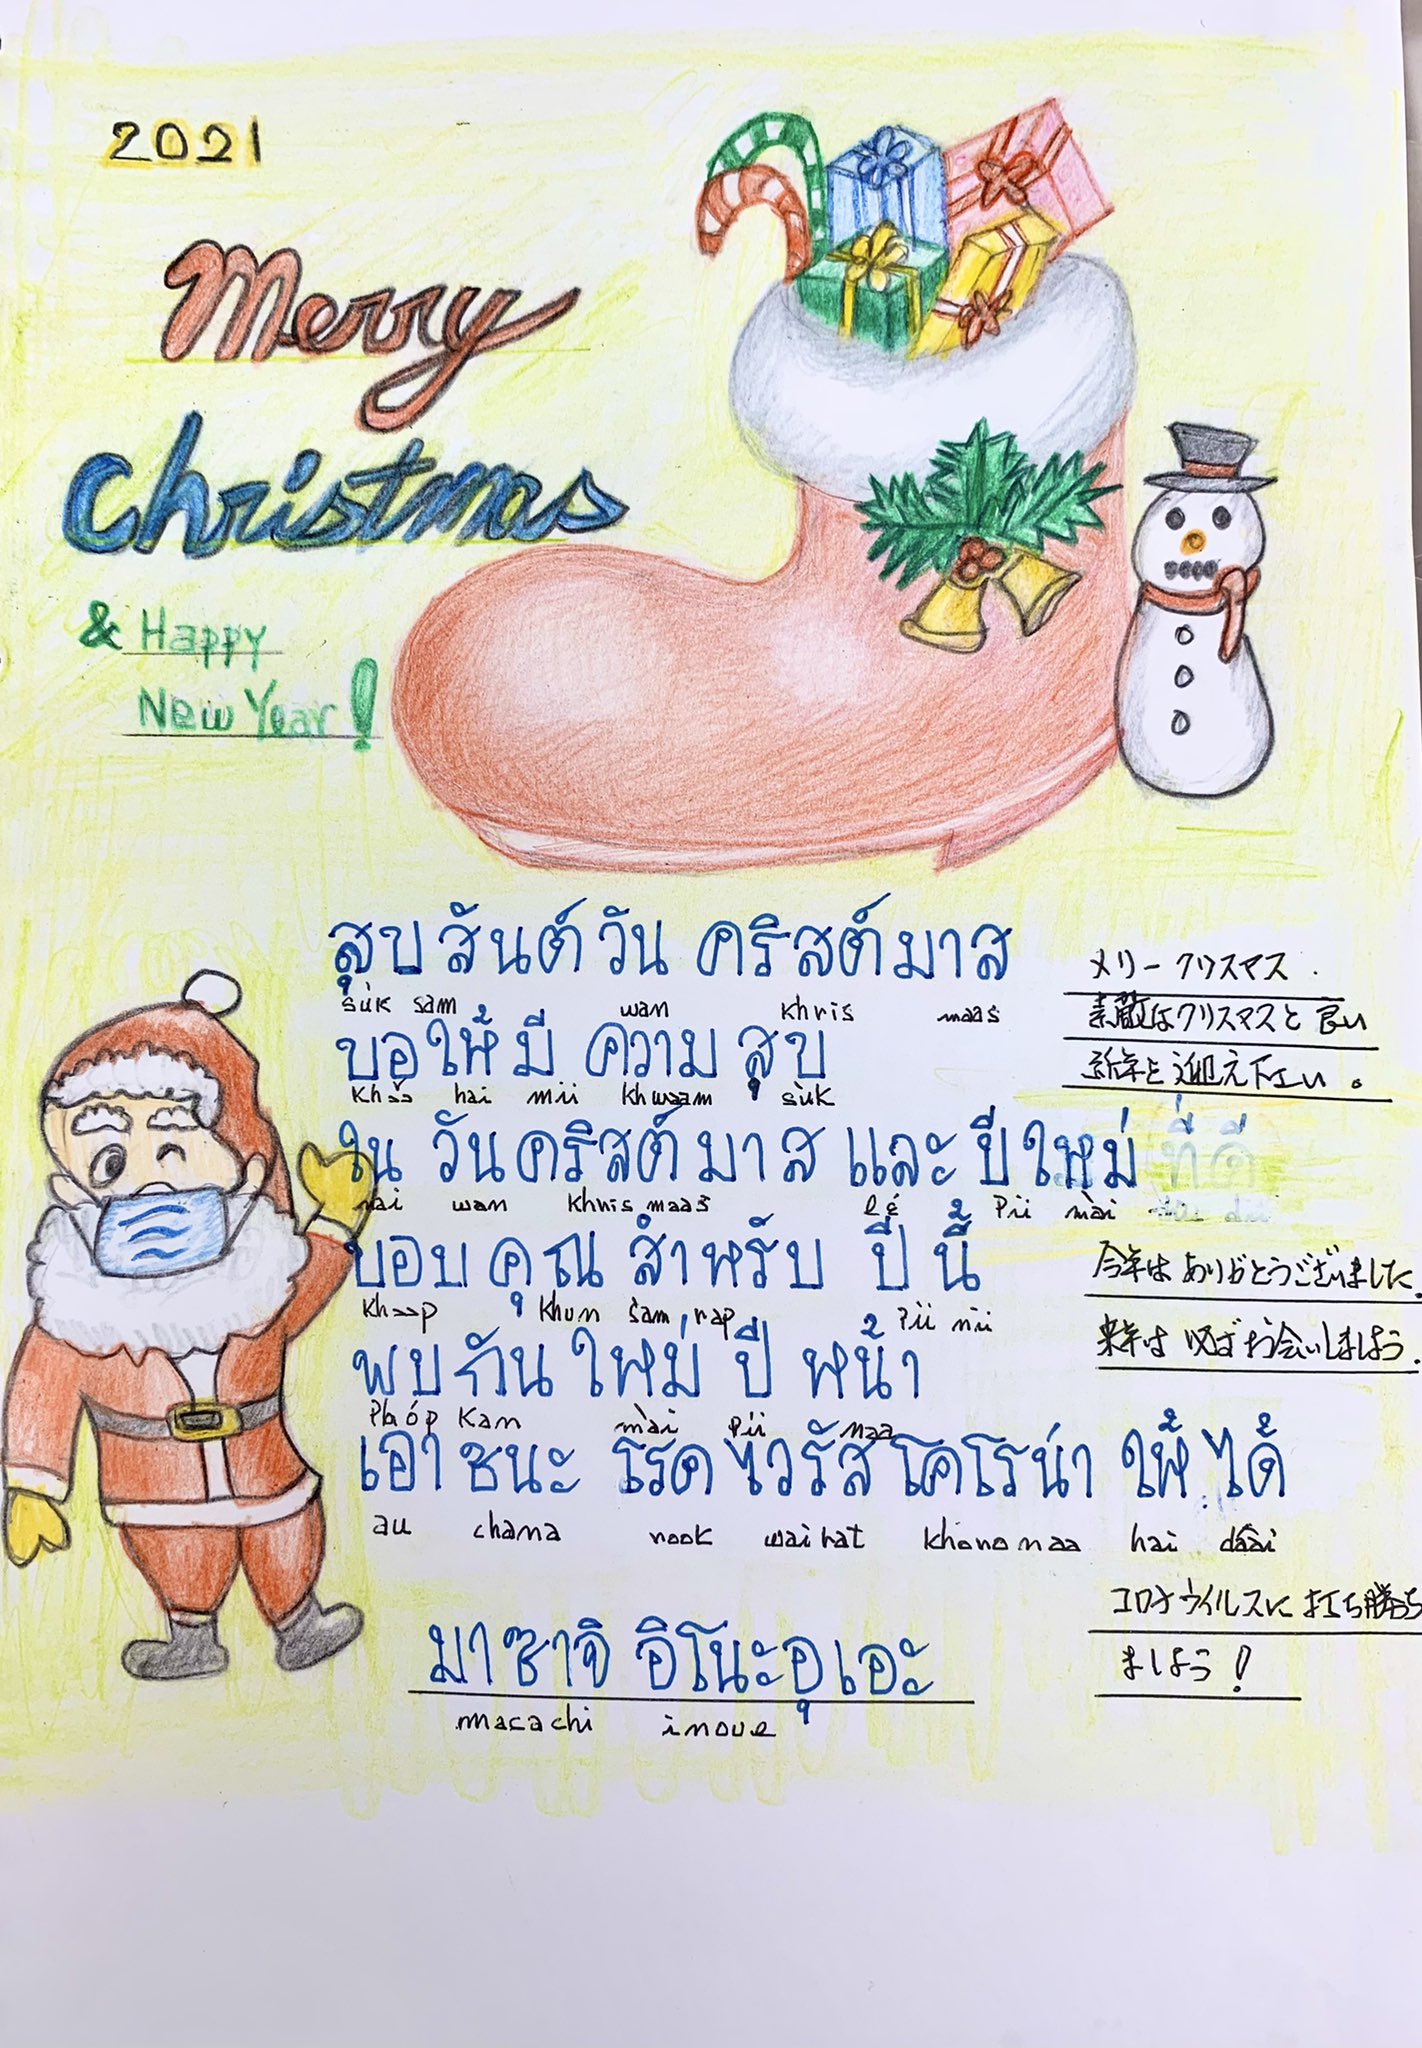 2021
Merry
Christmas
& Happy
New Year!
สุขสันต์วันคริสต์มาส
sùk sam wan khris maas
メリークリスマス.
ขอให้มีความสุข
khɔ̌ɔ hai mii khwaam sùk
素敵なクリスマスと良い
新年を迎え下さい。
ในวันคริสต์มาสและปีใหม่ ที่ดี
nai wan khris maas lɛ́ Pii mài thii dii
ขอบคุณสำหรับปีนี้
khɔɔp khun sam rap Pii nii
今年はありがとうございました.
พบกันใหม่ปีหน้า
Phóp kan mài Pii naa
来年は必ずお会いしましょう.
เอาชนะโรคไวรัสโคโรน่าให้ได้
au chana rook wai rat khoronaa hai dâai
コロナウイルスに打ち勝ち
ましょう!
มาซาจิ อิโนะอุเอะ
macachi inoue